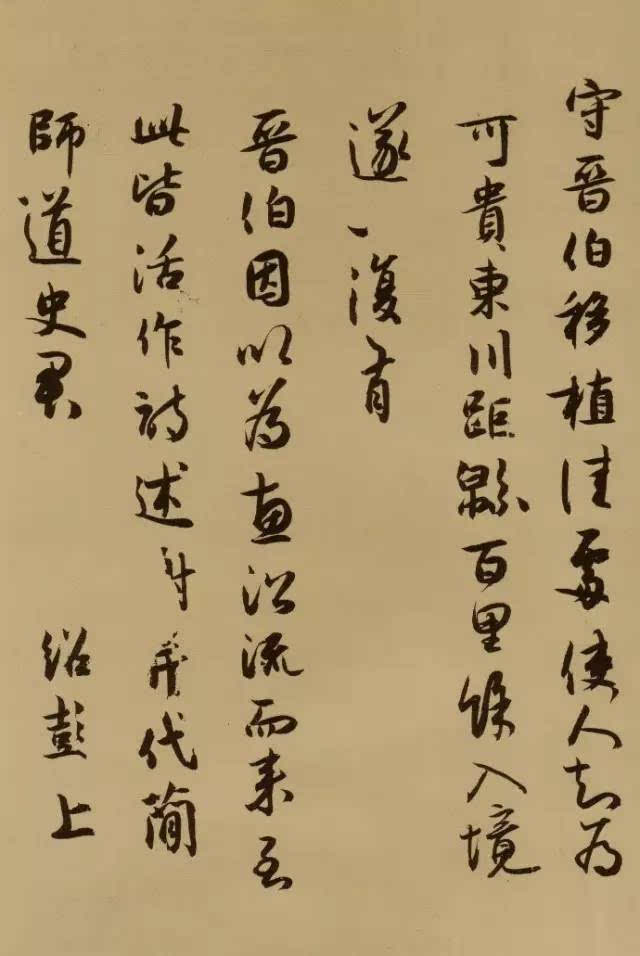 守晉伯移植佳處使人知為
可貴東川距緜百里餘入境
遂復有
晉伯因以為惠沿流而来至
此皆活作詩述代簡
師道史君 紹彭上